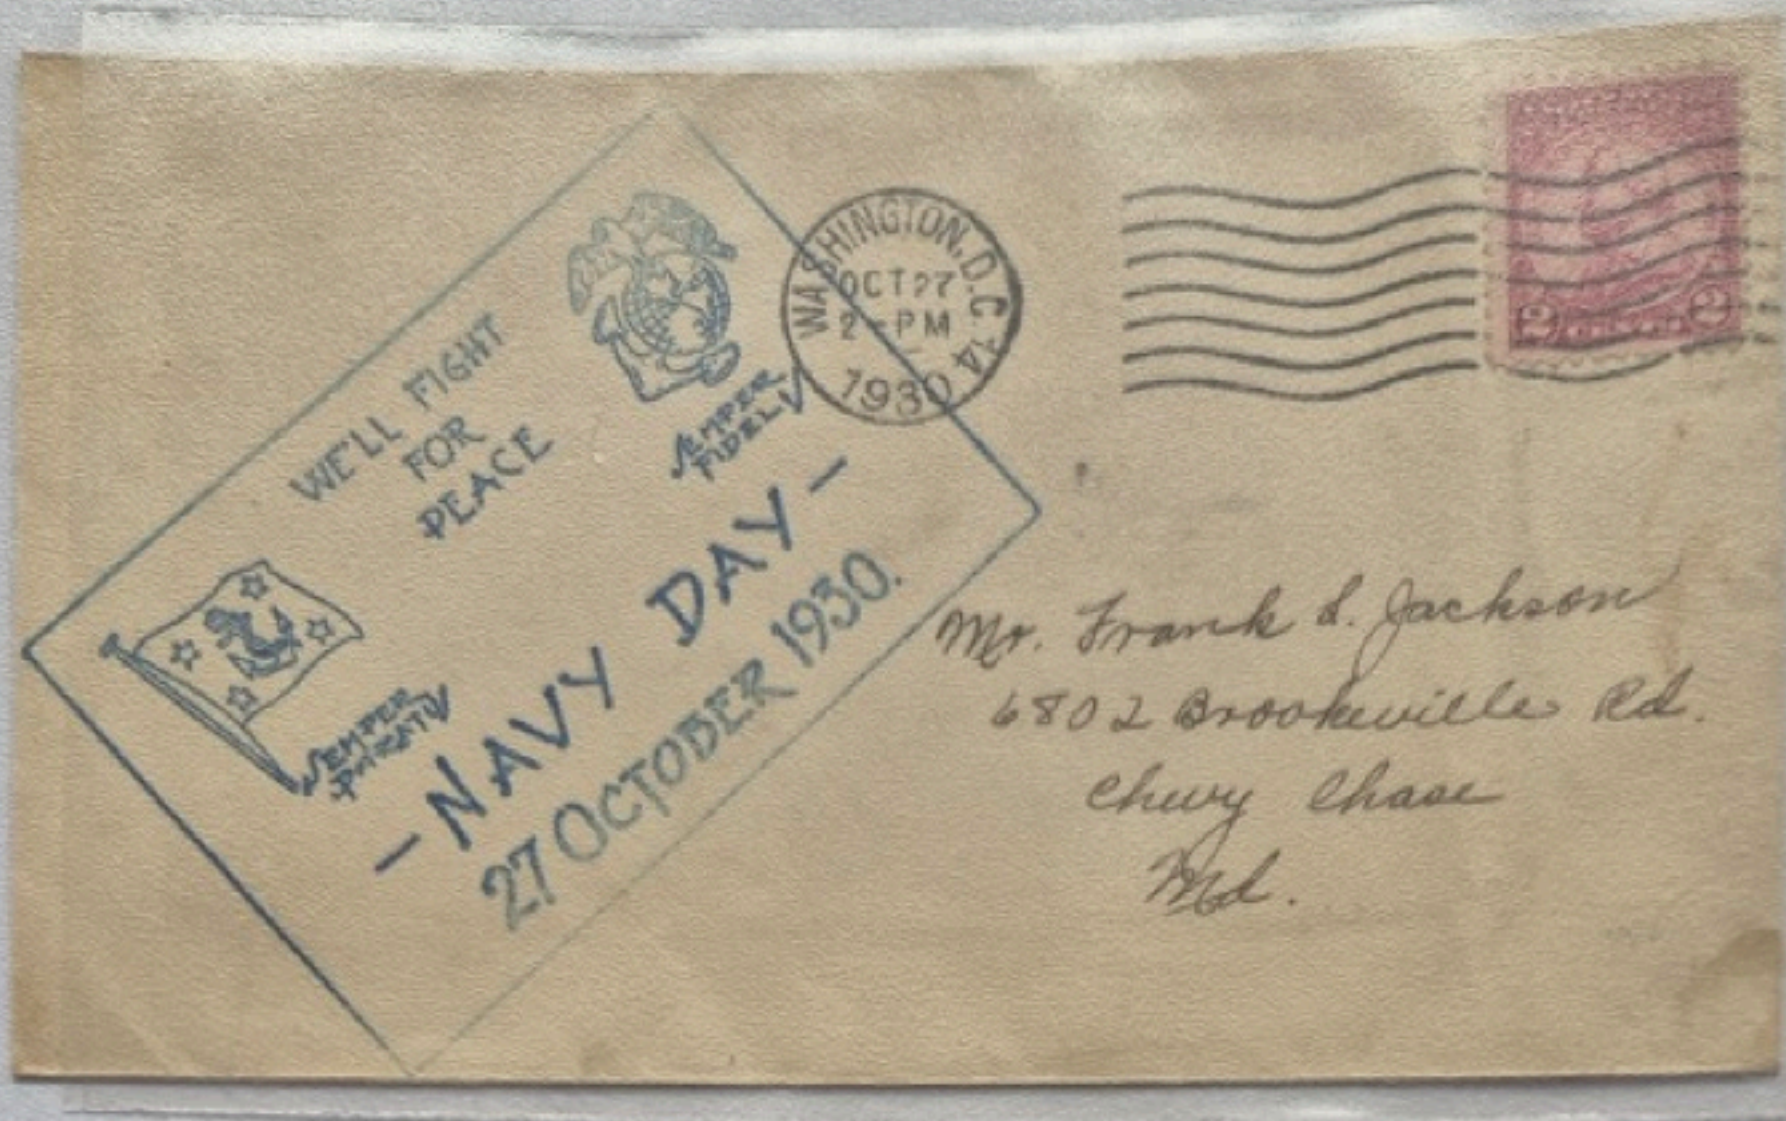 WE'LL FIGHT
FOR
PEACE
SEMPER
FIDELIS
SEMPER
PARATUS
- NAVY DAY -
27 OCTOBER 1930.
WASHINGTON, D.C. 14
OCT 27
2 - PM
1930
2 2
Mr. Frank S. Jackson
6802 Brookeville Rd.
Chevy Chase
Md.